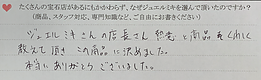 たくさんの宝石店があるにもかかわらず、なぜジュエルミキを選んで頂いたのですか？
(商品、スタッフ対応、専門知識など、ご自由にお書きください)
ジュエルミキさんの店長さん 親切で商品を くわしく
教えて頂き この商品に決めました。
本当にありがとうございました。